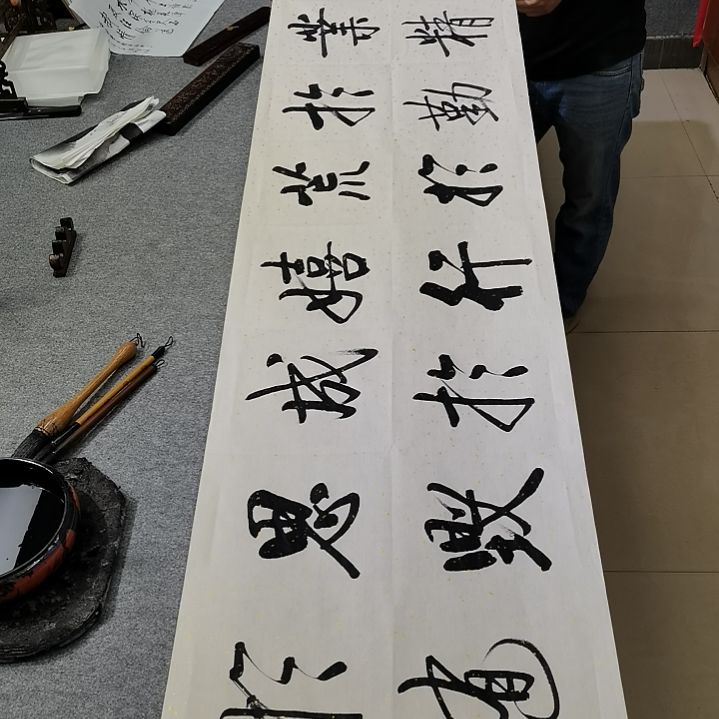 業精
於勤
荒於
嬉行
成於
思毁
於随